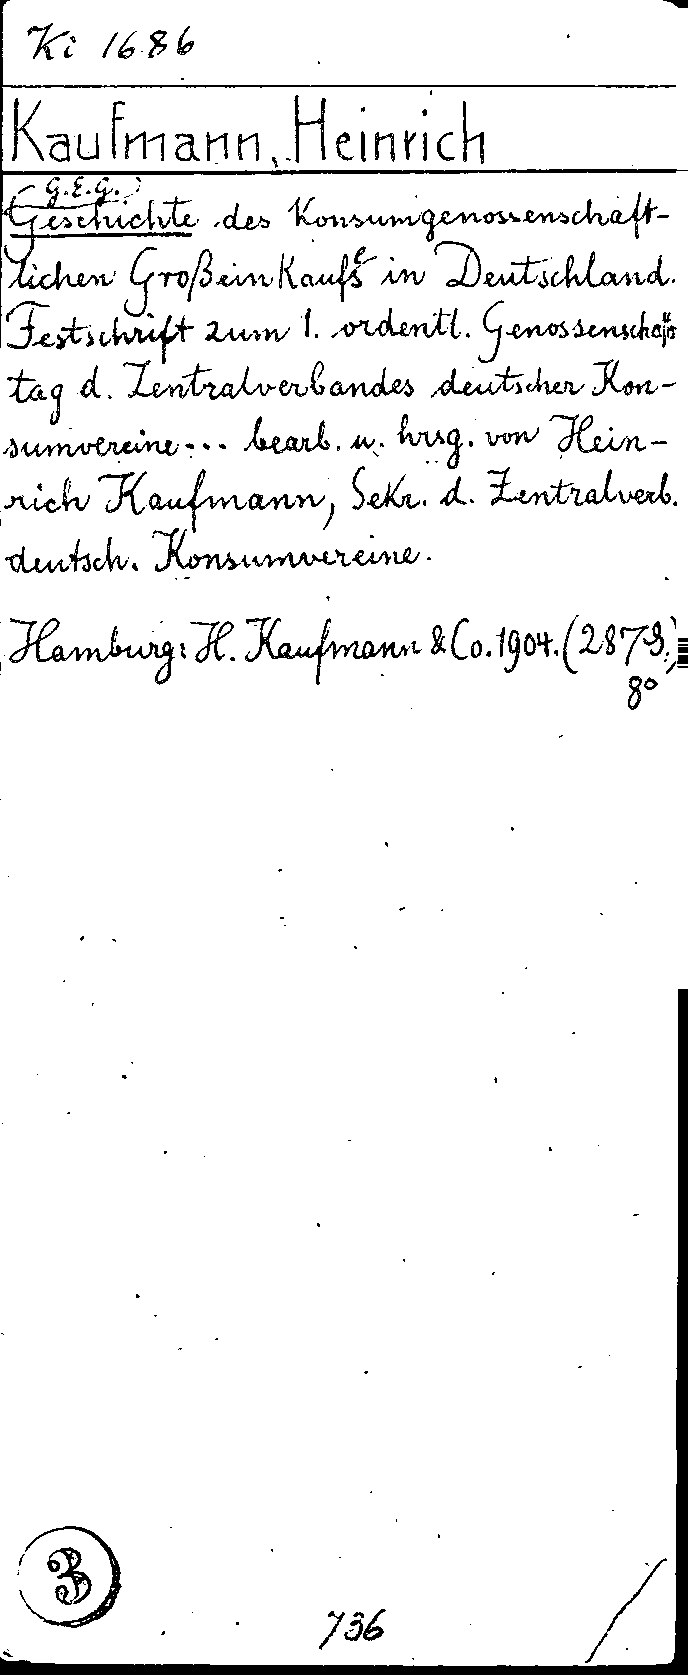 Ki 1686
Kaufmann, Heinrich
(G.E.G.)
Geschichte des Konsumgenossenschaft-
lichen Großeinkaufes in Deutschland.
Festschrift zum 1. ordentl. Genossenschafts
tag d. Zentralverbandes deutscher Kon-
sumvereine... bearb. u. hrsg. von Hein-
rich Kaufmann, Sekr. d. Zentralverb.
deutsch. Konsumvereine.
Hamburg: H. Kaufmann & Co. 1904. (287 S.)
8°
3
736